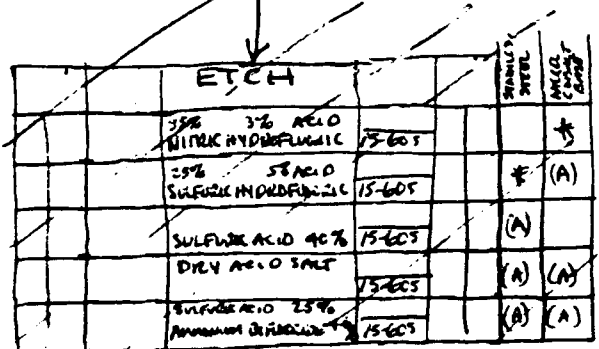 ETCH
STAINLESS STEEL
NICKEL COBALT BASE
3% ACID
NITRIC HYDROFLUORIC 15-605 *
25% 5% ACID
SULFURIC HYDROFLUORIC 15-605 * (A)
SULFURIC ACID 40% 15-605 (A)
DRY ACID SALT
15-605 (A) (A)
SULFURIC ACID 25%
AMMONIUM BIFLUORIDE 15-605 (A) (A)